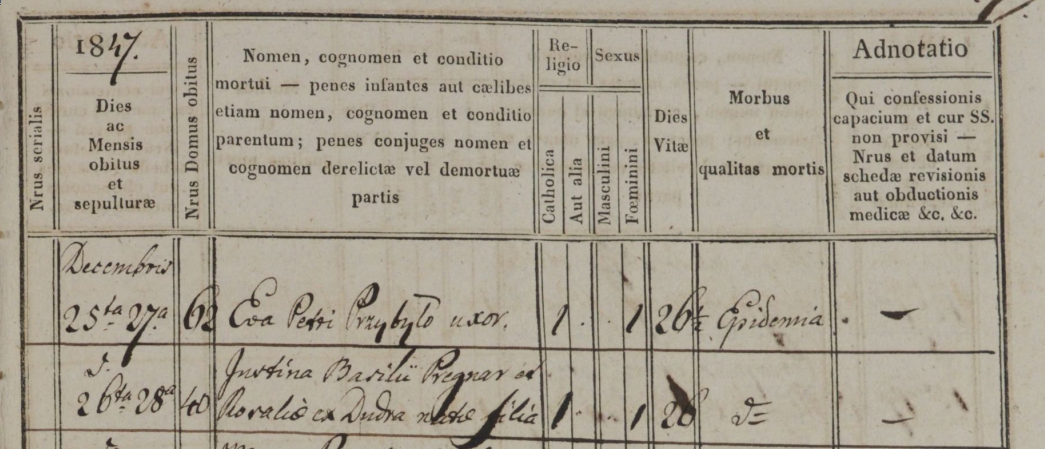 1847.
Nrus serialis
Dies
ac
Mensis
obitus
et
sepulturæ
Nrus Domus obitus
Nomen, cognomen et conditio
mortui — penes infantes aut cælibes
etiam nomen, cognomen et conditio
parentum; penes conjuges nomen et
cognomen derelictæ vel demortuæ
partis
Re-
ligio
Catholica
Aut alia
Sexus
Masculini
Fœminini
Dies
Vitæ
Morbus
et
qualitas mortis
Adnotatio
Qui confessionis
capacium et cur SS.
non provisi —
Nrus et datum
schedæ revisionis
aut obductionis
medicæ &c. &c.
Decembris
25ta 27a 62 Eva Petri Przybyło uxor. 1 1 26½ Epidemia —
Justina Basilii Pregnar et
26ta 28a 40 Rosaliæ ex Dudra natæ filia 1 1 26 d= —